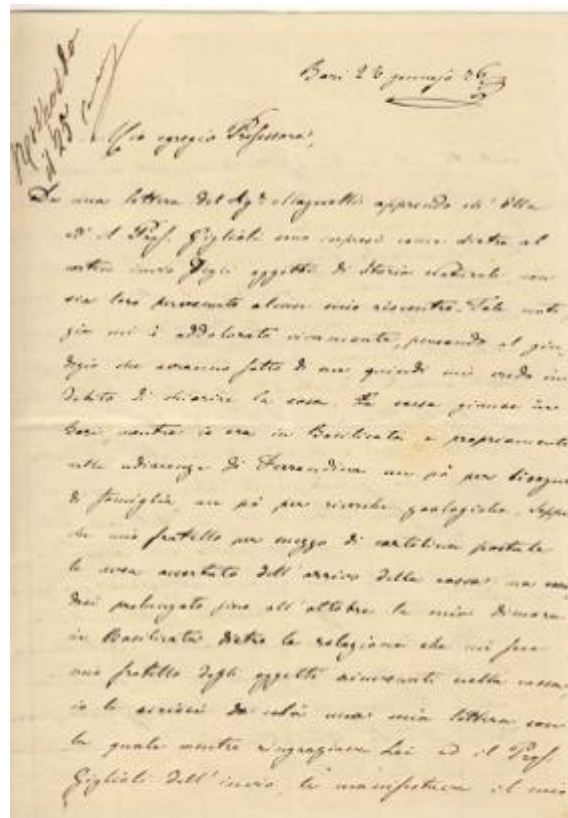 risposto
il 25
Bari 26 gennajo 86
Mio egregio Professore,
Da una lettera del Sigr Magnetti apprendo ch'Ella
ed il Prof. Giglioli sono sorpresi come dietro al
invio degli oggetti di Storia Naturale non
sia loro pervenuto alcun mio riscontro. Tale noti,
zia mi à addolorato vivamente, pensando al giu,
dizio che avranno fatto di me quindi mi credo in
debito di chiarire la cosa. La cassa giunse in
Bari mentre io era in Basilicata e propriamente
nelle adiacenze di Ferrandina un pò per bisogni
di famiglia, un pò per ricerche geologiche. Seppi
da mio fratello per mezzo di cartolina postale
le avea accertato dell'arrivo della cassa: ma
prolungato fino all'ottobre la mia dimora
in Basilicata dietro la relazione che mi fece
mio fratello degli oggetti rinvenuti nella cassa
io le scrissi da colà una mia lettera con
la quale mentre ringraziava Lei ed il Prof.
Giglioli dell'invio, le manifestava il mio